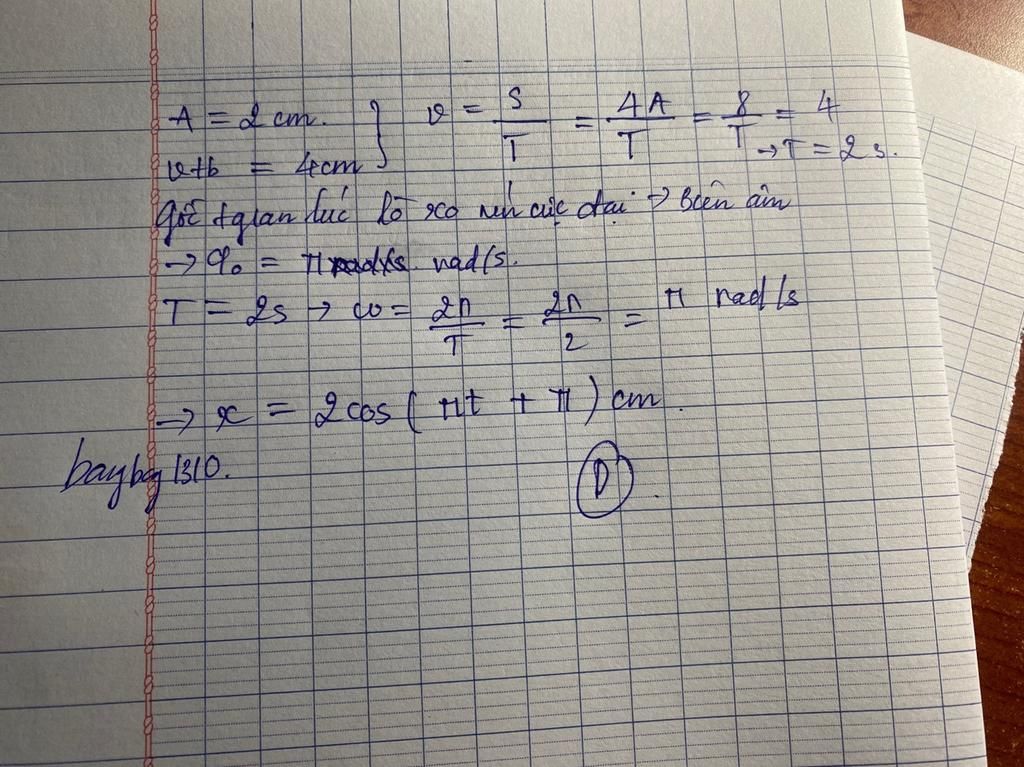 A = 2 cm. } v = S/T = 4A/T = 8/T = 4 → T = 2s.
vtb = 4cm
gốc tgian lúc lò xo nén cực đại → biên âm
→ φ₀ = π rad/s.
T = 2s → ω = 2π/T = 2π/2 = π rad/s
→ x = 2cos(πt + π) cm.
bayboy1310. D.